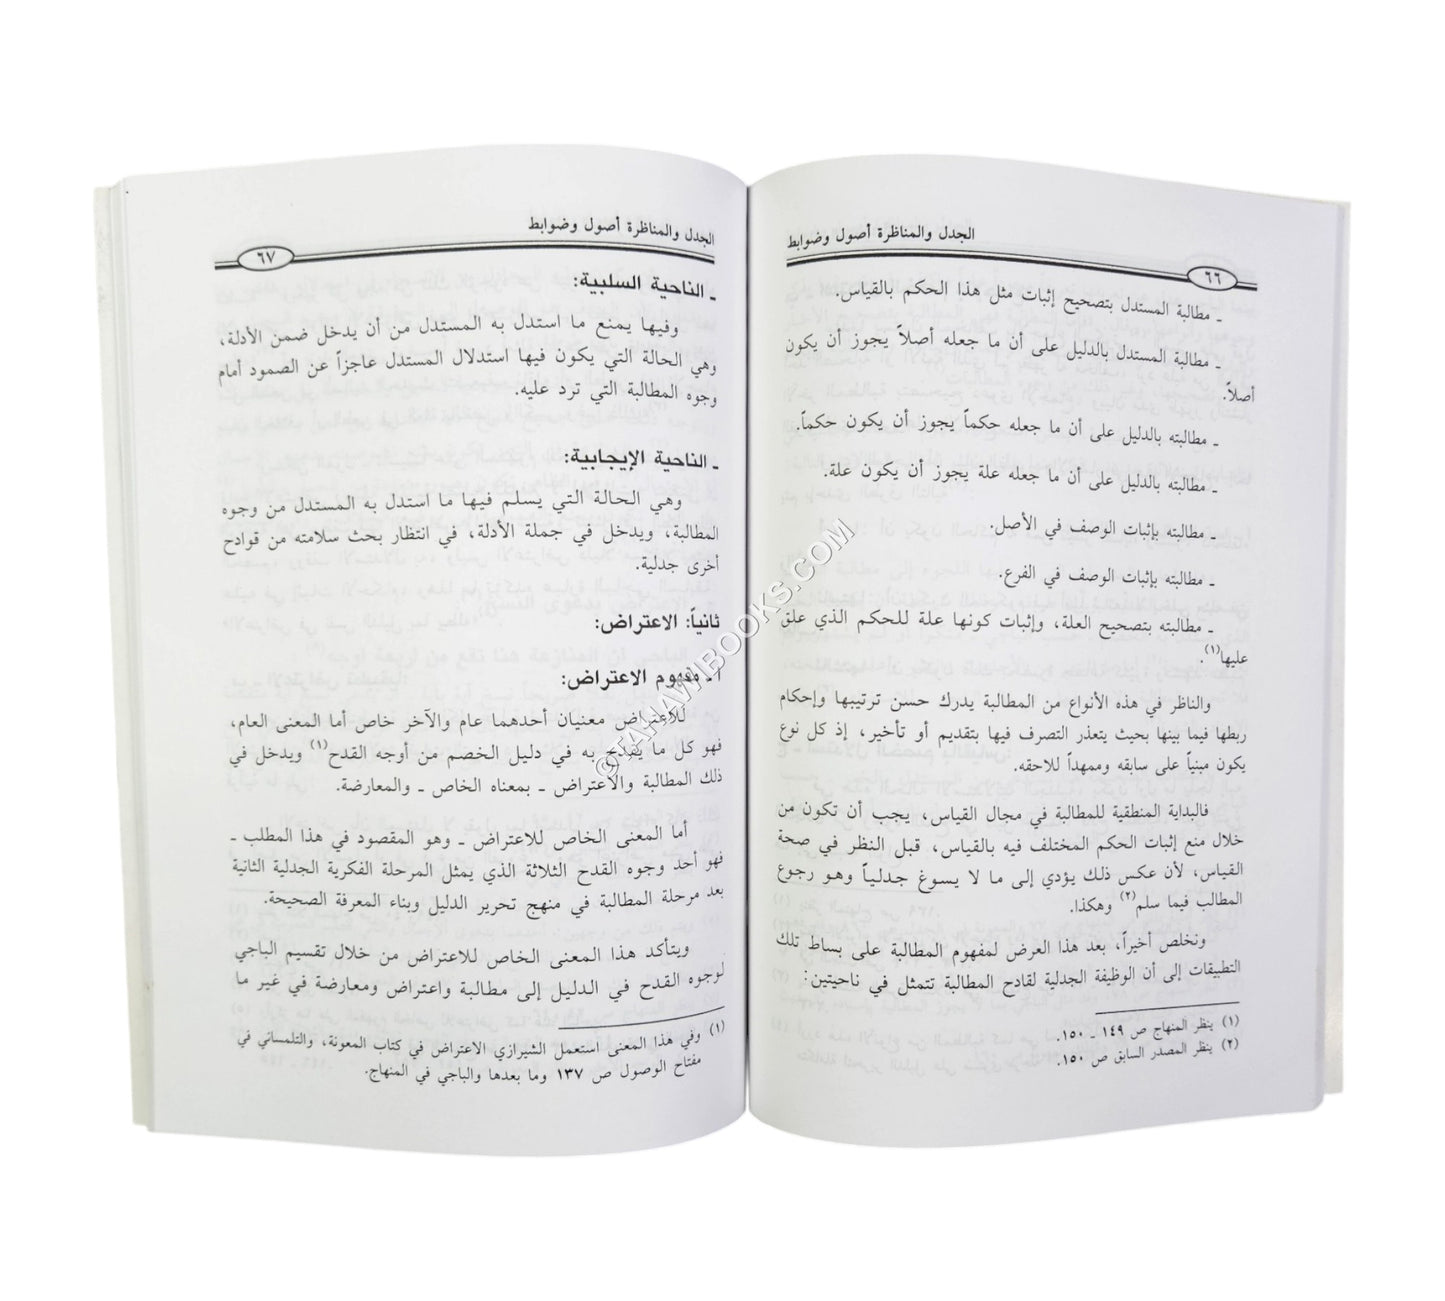 الجدل والمناظرة أصول وضوابط
٦٦
ـ مطالبة المستدل بتصحيح إثبات مثل هذا الحكم بالقياس.
ـ مطالبة المستدل بالدليل على أن ما جعله أصلاً يجوز أن يكون
أصلاً.
ـ مطالبته بالدليل على أن ما جعله حكماً يجوز أن يكون حكماً.
ـ مطالبته بالدليل على أن ما جعله علة يجوز أن يكون علة.
ـ مطالبته بإثبات الوصف في الأصل.
ـ مطالبته بإثبات الوصف في الفرع.
ـ مطالبته بتصحيح العلة، وإثبات كونها علة للحكم الذي علق
عليها(١).
والناظر في هذه الأنواع من المطالبة يدرك حسن ترتيبها وإحكام
ربطها فيما بينها بحيث يتعذر التصرف فيها بتقديم أو تأخير، إذ كل نوع
يكون مبنياً على سابقه وممهداً للاحقه.
فالبداية المنطقية للمطالبة في مجال القياس، يجب أن تكون من
خلال منع إثبات الحكم المختلف فيه بالقياس، قبل النظر في صحة
القياس، لأن عكس ذلك يؤدي إلى ما لا يسوغ جدلياً وهو رجوع
المطالب فيما سلم(٢) وهكذا.
ونخلص أخيراً، بعد هذا العرض لمفهوم المطالبة على بساط تلك
التطبيقات إلى أن الوظيفة الجدلية لقادح المطالبة تتمثل في ناحيتين:
(١) ينظر المنهاج ص ١٤٩ ـ ١٥٠.
(٢) ينظر المصدر السابق ص ١٥٠.
الجدل والمناظرة أصول وضوابط
٦٧
ـ الناحية السلبية:
وفيها يمنع ما استدل به المستدل من أن يدخل ضمن الأدلة،
وهي الحالة التي يكون فيها استدلال المستدل عاجزاً عن الصمود أمام
وجوه المطالبة التي ترد عليه.
ـ الناحية الإيجابية:
وهي الحالة التي يسلم فيها ما استدل به المستدل من وجوه
المطالبة، ويدخل في جملة الأدلة، في انتظار بحث سلامته من قوادح
أخرى جدلية.
ثانياً: الاعتراض:
أ ـ مفهوم الاعتراض:
للاعتراض معنيان أحدهما عام والآخر خاص أما المعنى العام،
فهو كل ما يقدح به في دليل الخصم من أوجه القدح(١) ويدخل في
ذلك المطالبة والاعتراض ـ بمعناه الخاص ـ والمعارضة.
أما المعنى الخاص للاعتراض ـ وهو المقصود في هذا المطلب ـ
فهو أحد وجوه القدح الثلاثة الذي يمثل المرحلة الفكرية الجدلية الثانية
بعد مرحلة المطالبة في منهج تحرير الدليل وبناء المعرفة الصحيحة.
ويتأكد هذا المعنى الخاص للاعتراض من خلال تقسيم الباجي
لوجوه القدح في الدليل إلى مطالبة واعتراض ومعارضة في غير ما
(١) وفي هذا المعنى استعمل الشيرازي الاعتراض في كتاب المعونة، والتلمساني في
مفتاح الوصول ص ١٣٧ وما بعدها والباجي في المنهاج.